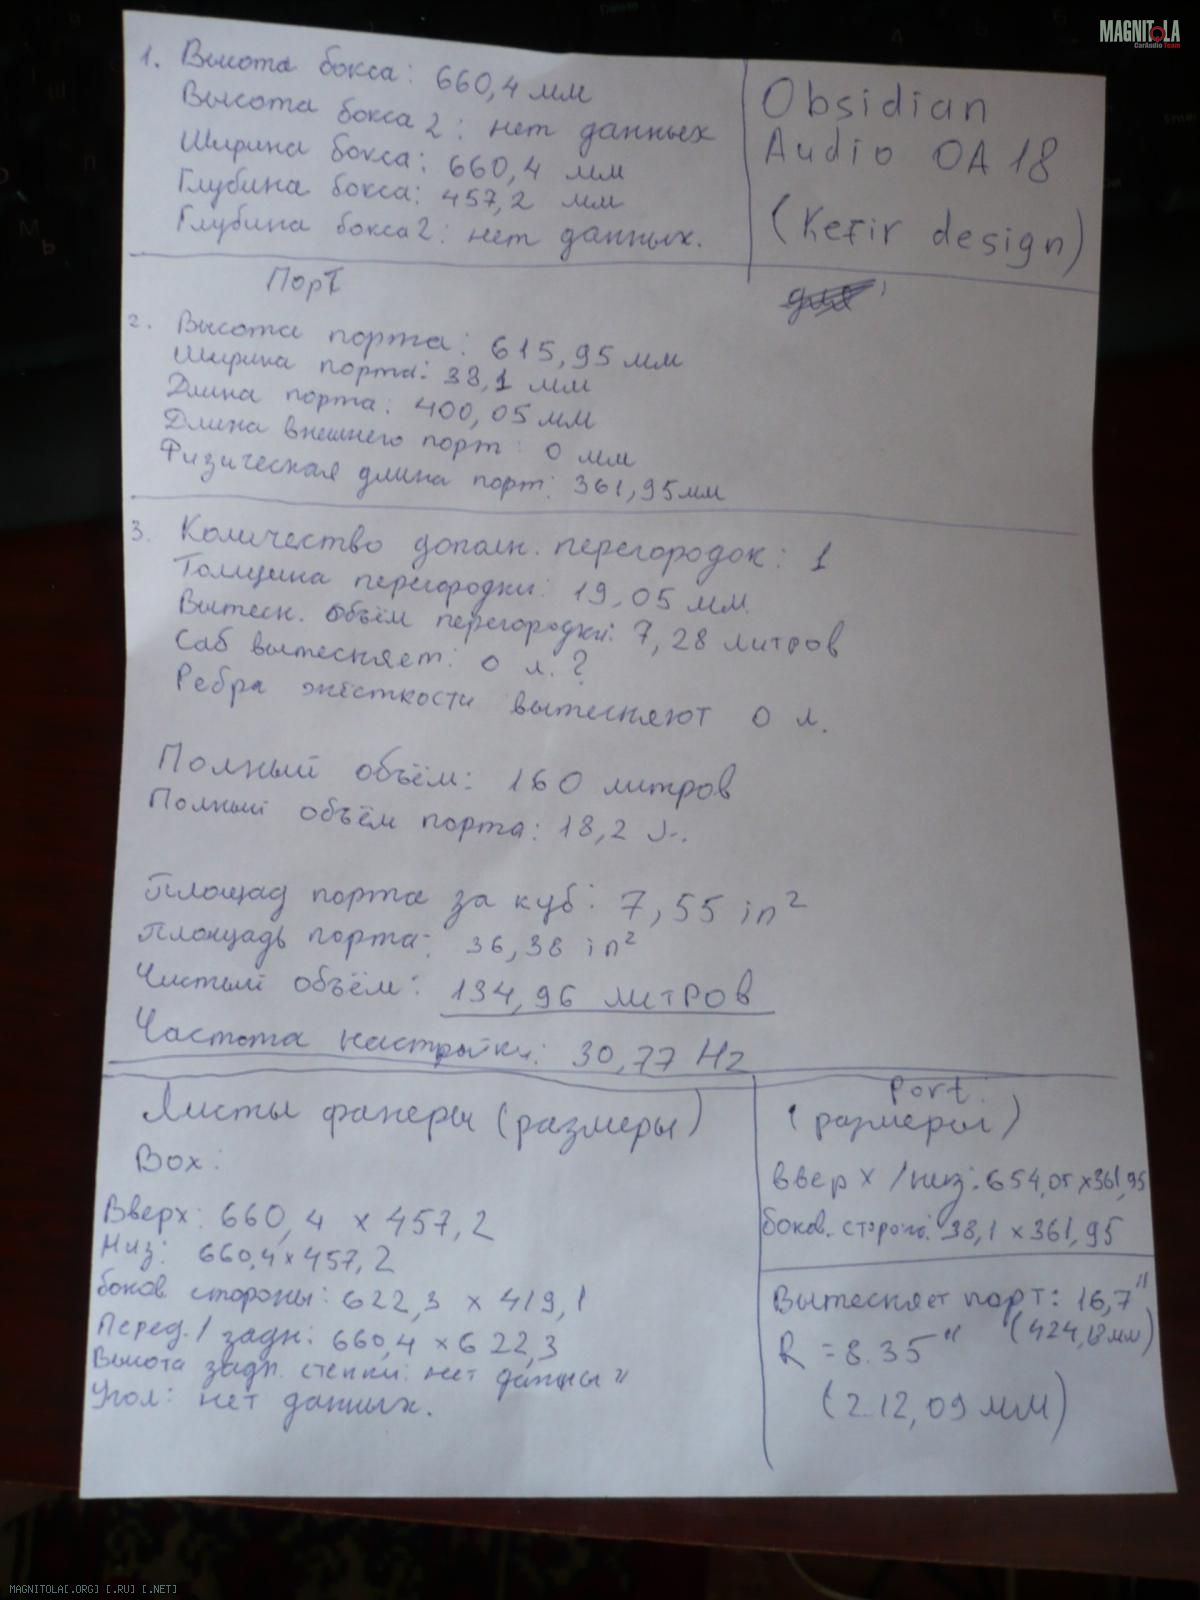 MAGNITOLA
CarAudio Team
1. Высота бокса: 660,4 мм
Высота бокса 2: нет данных
Ширина бокса: 660,4 мм
Глубина бокса: 457,2 мм
Глубина бокса 2: нет данных.
Obsidian
Audio OA 18
(Kefir design)
Порт
2. Высота порта: 615,95 мм
Ширина порта: 38,1 мм
Длина порта: 400,05 мм
Длина внешнего порт: 0 мм
Физическая длина порт: 361,95мм
3. Количество дополн. перегородок: 1
Толщина перегородки: 19,05 мм
Вытесн. объём перегородки: 7,28 литров
Саб вытесняет: 0 л. ?
Ребра жёсткости вытесняют 0 л.
Полный объём: 160 литров
Полный объём порта: 18,2 л.
Площад порта за куб: 7,55 in²
Площадь порта: 36,38 in²
Чистый объём: 134,96 литров
Частота настройки: 30,77 Hz
Листы фанеры (размеры)
Box:
Вверх: 660,4 x 457,2
Низ: 660,4 x 457,2
боков. стороны: 622,3 x 419,1
Перед./задн: 660,4 x 622,3
Высота задн. стенки: нет данны"
Угол: нет данных.
Port:
(размеры)
вверх/низ: 654,05 x 361,95
боков. сторона: 38,1 x 361,95
Вытесняет порт: 16,7"
(424,18мм)
R = 8.35"
(212,09 мм)
MAGNITOLA[.ORG] [.RU] [.NET]